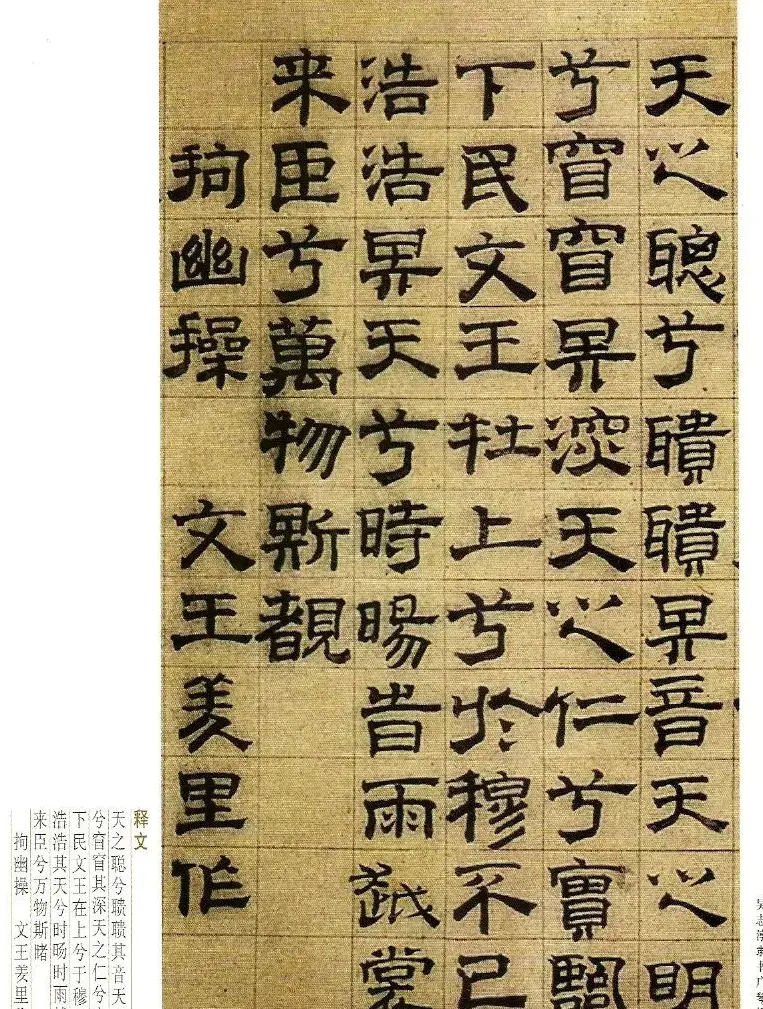 天之聰兮聵聵昇音天之明
兮窅窅昇深天之仁兮實
下民文王在上兮於穆不已
浩浩昇天兮時暘時雨越裳
来臣兮萬物斯覩
拘幽操 文王羑里作
释文
天之聪兮聩聩其音天
兮窅窅其深天之仁兮
下民文王在上兮于穆
浩浩其天兮时旸时雨
来臣兮万物斯睹
拘幽操 文王羑里